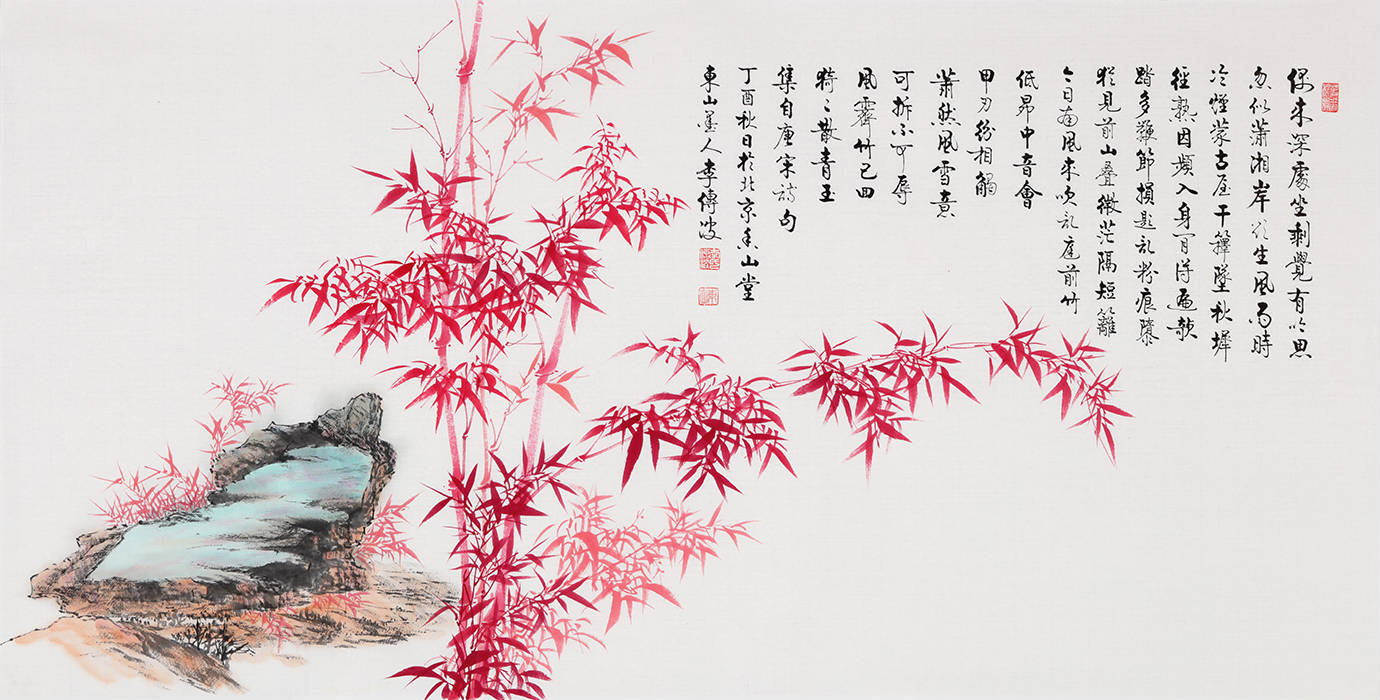 偶来深處坐剩覺有吟思
忽似瀟湘岸欲生風雨時
冷煙蒙古屋干籜墜秋墀
徑熟因頻入身閒得遍欹
踏多鞭節損題亂粉痕隳
猶見前山疊微茫隔短籬
今日南風来吹乱庭前竹
低昂中音會
甲刃紛相觸
蕭然風雪意
可折不可辱
風霽竹已回
猗〻散青玉
集自唐宋詩句
丁酉秋日於北京香山堂
東山墨人李傳波